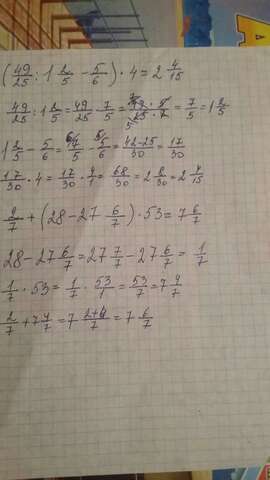 (49/25 : 1 2/5 - 5/6) · 4 = 2 4/15
49/25 : 1 2/5 = 49/25 - 7/5 = 49 · 5 / 25 · 7 = 7/5 = 1 2/5
1 2/5 - 5/6 = 7/5 - 5/6 = 42-25/30 = 17/30
17/30 · 4 = 17/30 · 4/1 = 68/30 = 2 8/30 = 2 4/15
2/7 + (28 - 27 6/7) · 53 = 7 6/7
28 - 27 6/7 = 27 7/7 - 27 6/7 = 1/7
1/7 · 53 = 1/7 · 53/1 = 53/7 = 7 4/7
2/7 + 7 4/7 = 7 2+4/7 = 7 6/7